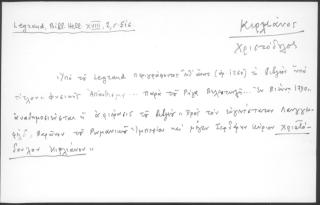 Legrand, Bibl. Hell. XVIII, 2, σ. 516
Κιρλιάνος
Χριστόδουλος
Ὑπὸ τοῦ Legrand περιγράφεται ὑπ' ἀριθ. (ἀρ. 1260) τὸ βιβλίον ὑπὸ
τίτλον: Φυσικῆς Ἀπάνθισμα ... παρὰ τοῦ Ρήγα Βελεστινλῆ... Ἐν Βιέννῃ 1790,
ἀναδημοσιεύεται ἡ ἀφιέρωσις τοῦ βιβλίου « Πρὸς τὸν εὐγενέστατον
Βαρῶνον τοῦ Ρωμανικοῦ Ἰμπερίου καὶ μέγαν Σερδάρην κύριον Χριστό-
δουλον Κιρλιάνον »